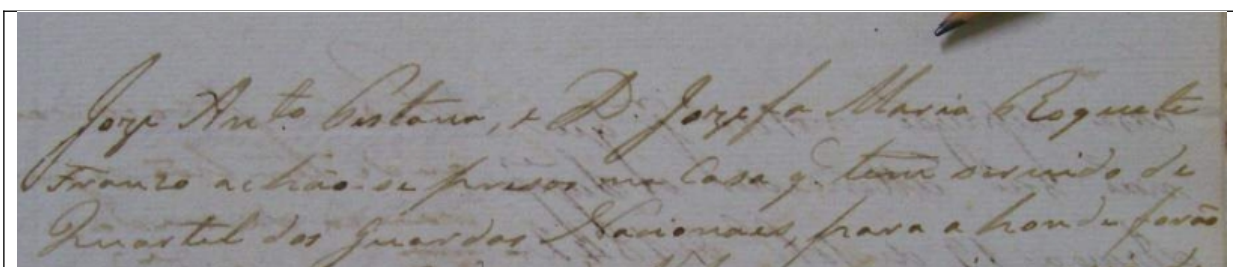 Joze Ant.to Pestana, e D. Jozefa Maria Roquete
Franco achão-se prezos na Casa q. tem servido de
Quartel dos Guardas Nacionaes, para a honde forão